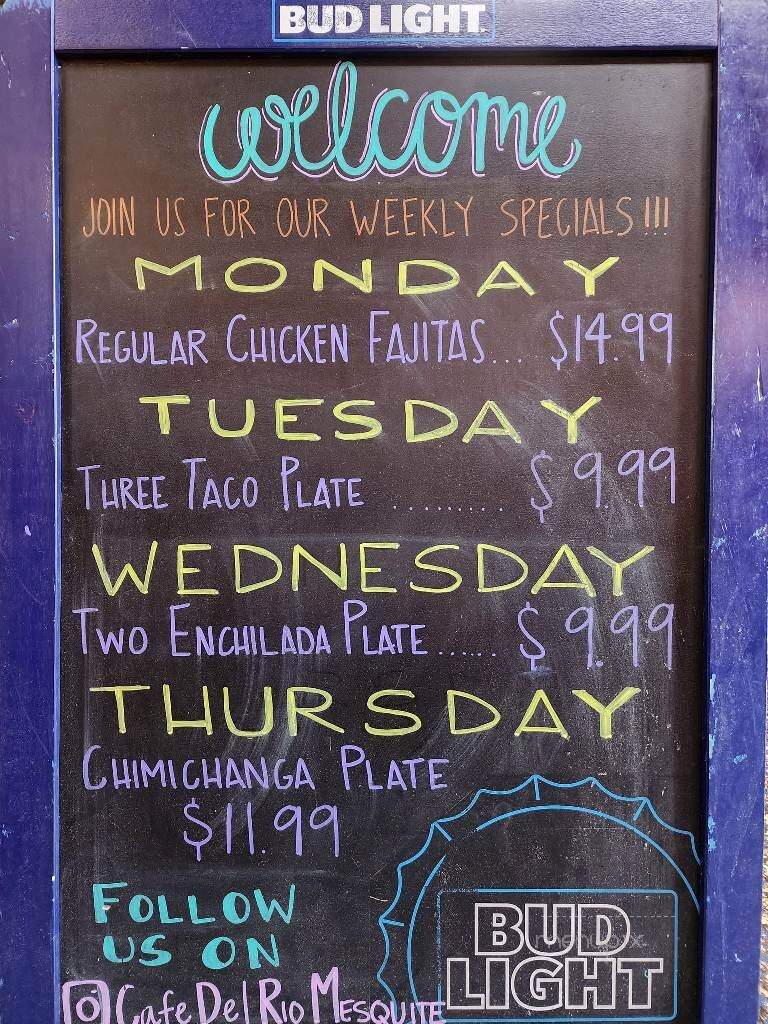 BUD LIGHT
welcome
JOIN US FOR OUR WEEKLY SPECIALS!!!
MONDAY
REGULAR CHICKEN FAJITAS... $14.99
TUESDAY
THREE TACO PLATE .......... $9.99
WEDNESDAY
TWO ENCHILADA PLATE...... $9.99
THURSDAY
CHIMICHANGA PLATE
$11.99
FOLLOW
US ON
Cafe Del Rio MESQUITE
BUD
LIGHT